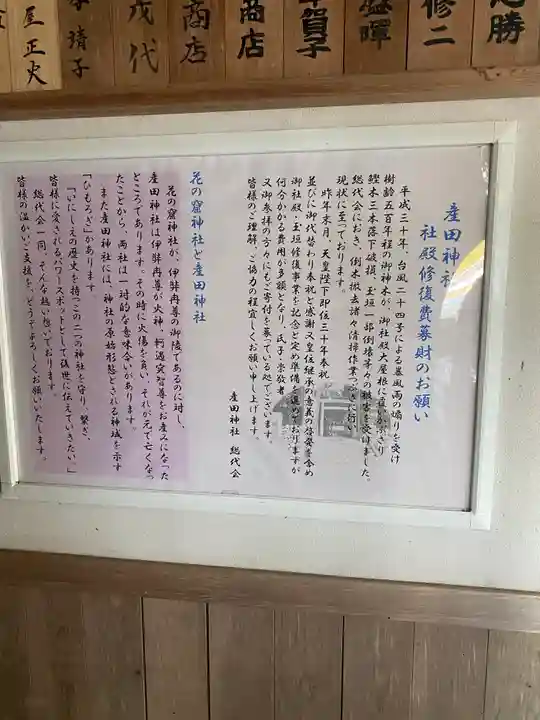 屋正火
靖子
茂代
商店
商店
質子
盛暉
修二
勝
産田神社
社殿修復費募財のお願い
平成三十年、台風二十四号による暴風雨の煽りを受け
樹齢五百年程の御神木が、御社殿大屋根に覆いかぶさり
鰹木三本落下破損、玉垣一部倒壊等々の被害を受けました。
総代会におき、倒木撤去諸々清掃作業
現状に至っております。
昨年末月、天皇陛下即位三十年奉祝
並びに御代替わり奉祝と感謝又皇位継承の意義の啓発を含め
御社殿・玉垣修復事業を記念と定め準備を進めておりますが
何分かかる費用が多額となり、氏子崇敬者
又御参拝の方々にもご寄付を募っている処でございます。
皆様のご理解、ご協力の程宜しくお願い申し上げます。
産田神社 総代会
花の窟神社と産田神社
花の窟神社が、伊弉冉尊の御陵であるのに対し、
産田神社は伊弉冉尊が火神・軻遇突智尊をお産みになった
ところであります。その時に火傷を負い、それが元で亡くなっ
たことから、両社は一対的な意味合いがあります。
また産田神社には、神社の原始形態とされる神域を示す
「ひもろぎ」があります
「いにしえの歴史を持つこの二つの神社を守り、繋ぎ、
皆様に愛されるパワースポットとして後世に伝えていきたい。」
総代会一同、そんな熱い想いでおります。
皆様の温かいご支援を、どうぞよろしくお願いいたします。